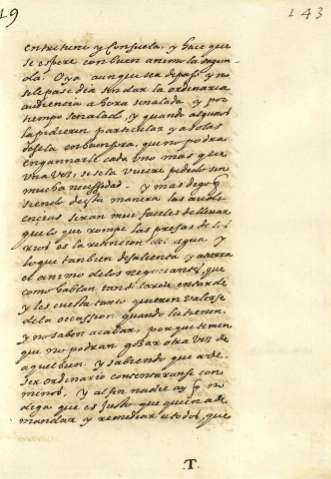 19 143
entretiene y Consuela, y hace que
se espere con buen animo la segun
da. Oya aunque sea de paso y no
se le pase dia sin dar la ordinaria
audiencia a hora señalada y por
tiempo señalado, y quando alguno
la pidiere particular y a solas
desela en buena, que no podra
engannarle cada uno mas que
una vez, si se la huviere pedido sin
mucha necesidad. y mas digo q
siendo desta manera las audi
encias seran mui faciles de llevar
que lo que rompe las presas de los
rios es la retencion del agua y
lo que tanbien desalienta y
el animo de los negociantes, que
como hablan tarde
y les cuesta tanto quieren valerse
de la occassion quando la tienen
y no saben acabar, porque temen
que no podran gozar otra vez de
aquel bien. y sabiendo que a de
ser ordinario contentaranse con
menos. y al fin nadie ay q no
diga que es justo que quien a de
mandar y remediar a todos, que
.T.